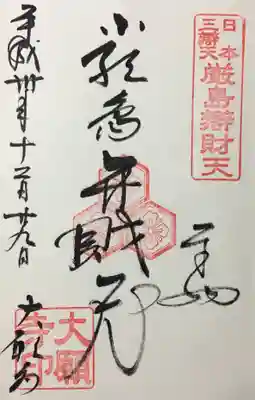 日本
三辯天
厳島辯財天
宮島
厳島弁財天
平成卅年十二月廿九日
大願寺
大願寺印